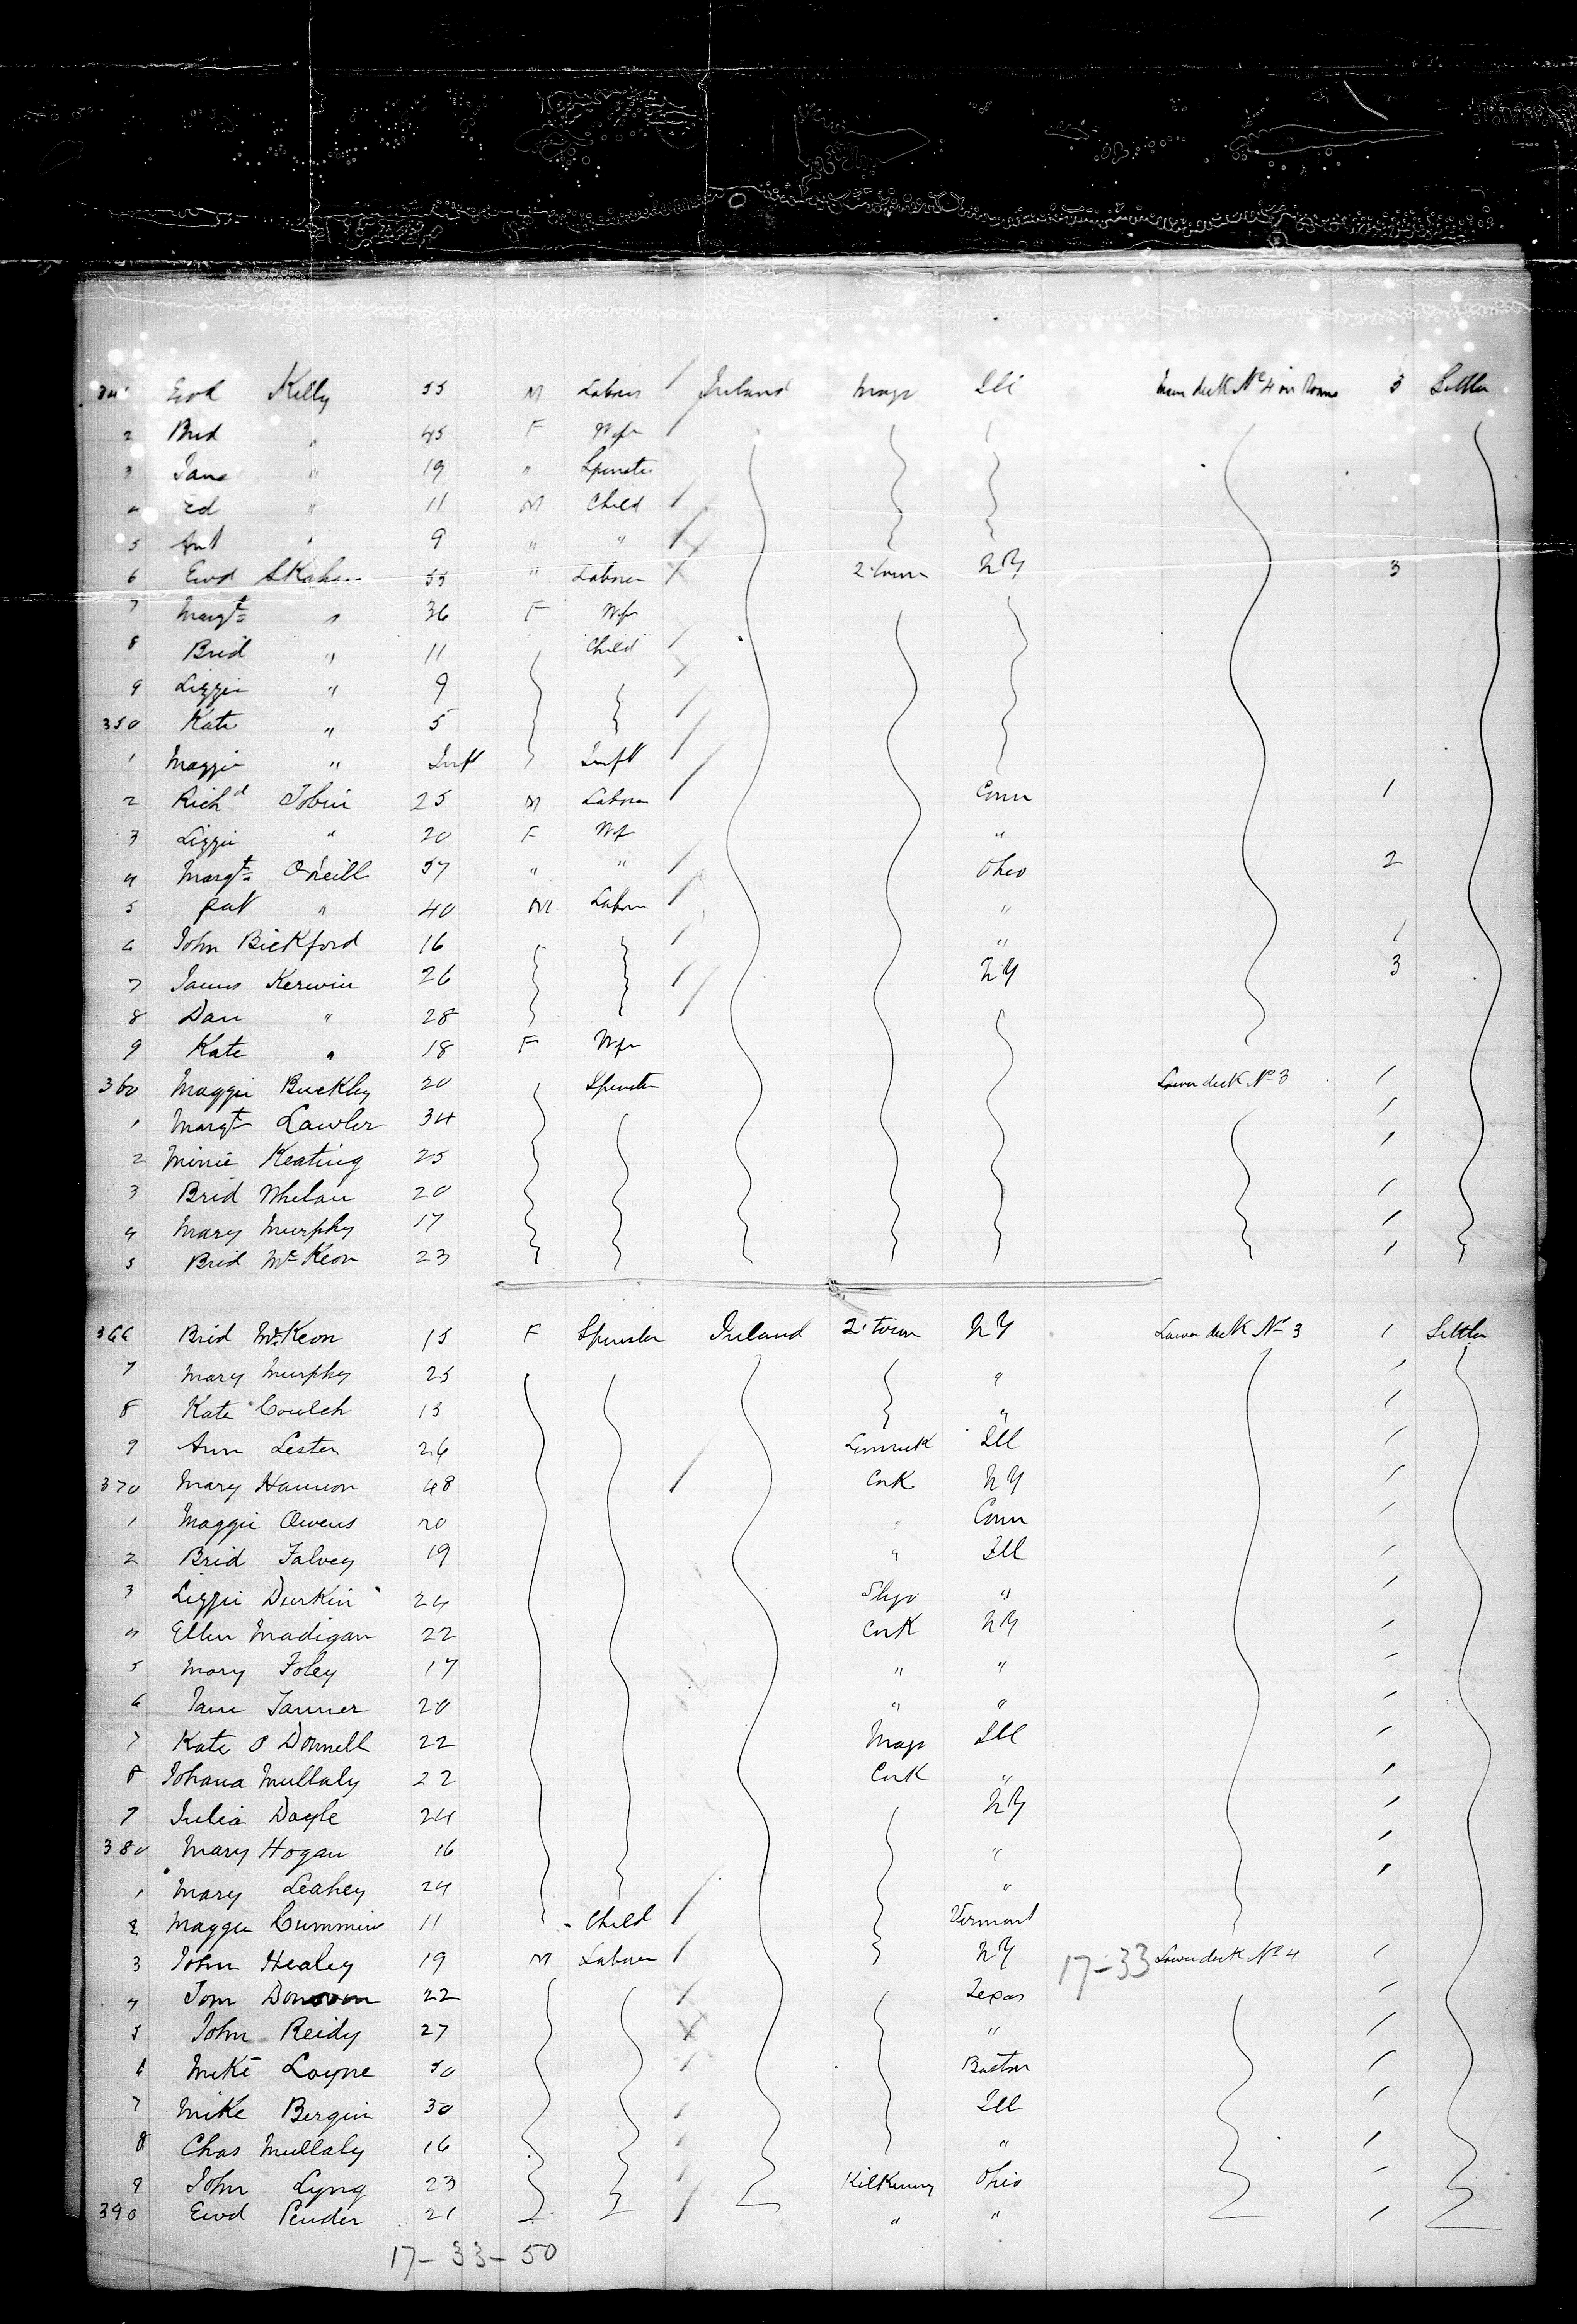 341 Ewd Kelly 55 M Labour Ireland Mayo Ill 3 Settler
2 Brid " 45 F Wife
3 Jane " 19 " Spinster
4 Ed " 11 M Child
5 Ant " 9 " "
6 Ewd 55 " Labour 2.town NY 3
7 Margt " 36 F Wife
8 Brid " 11 Child
9 Lizzie " 9
350 Kate " 5
1 Maggie " Inft Inft
2 Richd Tobin 25 M Labour Conn 1
3 Lizzie " 20 F Wf "
4 Margt O'Neill 57 " " Ohio 2
5 Pat " 40 M Labour "
6 John Bickford 16 " 1
7 James Kerwin 26 NY 3
8 Dan " 28
9 Kate " 18 F Wife
360 Maggie Buckley 20 Spinster Lower deck No 3 1
1 Margt Lawler 34 1
2 Minie Keating 25 1
3 Brid Whelan 20 1
4 Mary Murphy 17 1
5 Brid McKeon 23 1
366 Brid McKeon 15 F Spinster Ireland 2.town NY Lower deck No 3 1 Settler
7 Mary Murphy 25 " 1
8 Kate 13 " 1
9 Ann Lester 26 Limrick Ill 1
370 Mary Hannon 48 Cork NY 1
1 Maggie Owens 20 " Conn 1
2 Brid Falvey 19 " Ill 1
3 Lizzie Durkin 24 Sligo " 1
4 Ellen Madigan 22 Cork NY 1
5 Mary Foley 17 " " 1
6 Jane Tanner 20 " " 1
7 Kate O Donnell 22 Mayo Ill 1
8 Johana Mullaly 22 Cork " 1
9 Julia Doyle 24 NY 1
380 Mary Hogan 16 " 1
1 Mary Leahey 24 " 1
2 Maggie Cummins 11 Child Vermont
3 John Healey 19 M Labour NY 17-33 Lower deck No 4 1
4 Tom Donovan 22 Texas 1
5 John Reidy 27 " 1
6 Mike Layne 50 Boston 1
7 Mike Bergin 30 Ill 1
8 Chas Mullaly 16 " 1
9 John Lyng 23 Kilkenny Ohio 1
390 Ewd Pender 21 " " 1
17-33-50